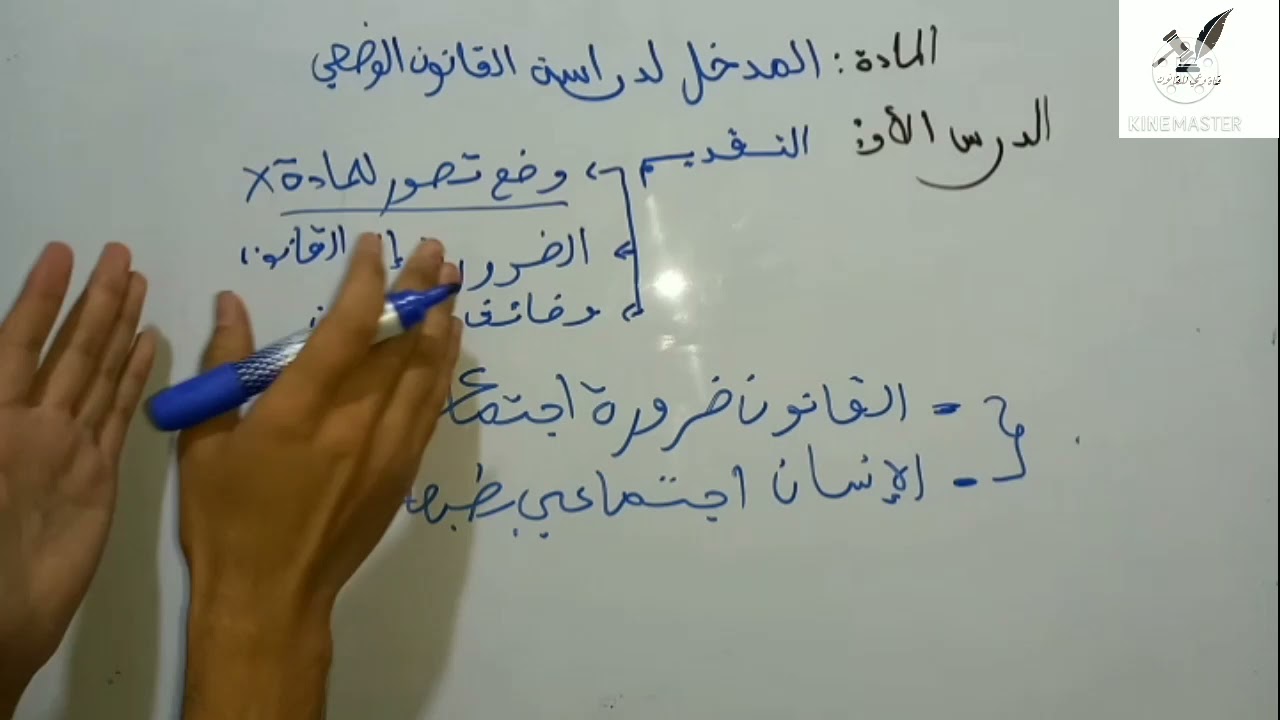 المادة: المدخل لدراسة القانون الوضعي
الدرس الأول: التقديم
وضع تصور للمادة ×
الضرورة إلى القانون
وظائف
- القانون ضرورة
- الإنسان اجتماعي
KINEMASTER